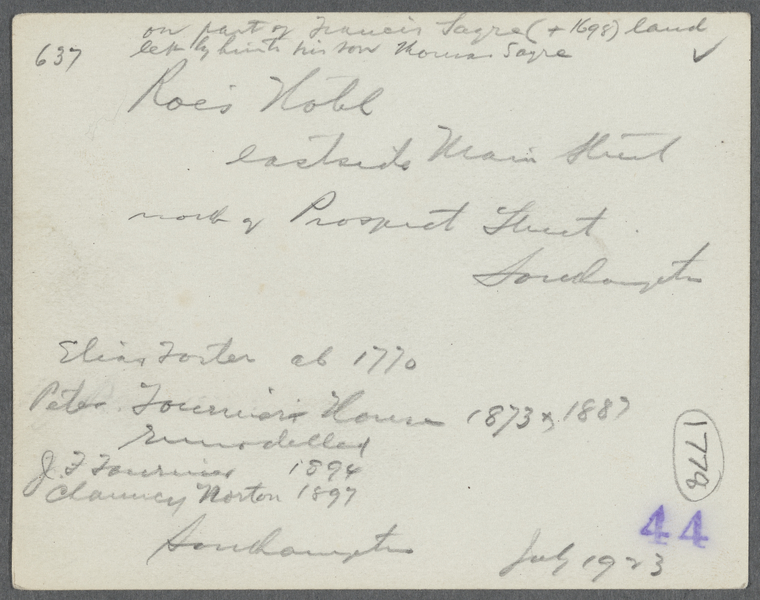 on part of Francis Sayre (+ 1698) land
637 left by him to his son Thomas Sayre ✓
Roes Hotel
east side Main Street
north of Prospect Street
Southampton
Elias Foster ab 1770
Peter Fournier's House 1873 & 1887
remodelled
J. F Fournier 1894
Chauncey Norton 1897
177a
44
Southampton July 1923